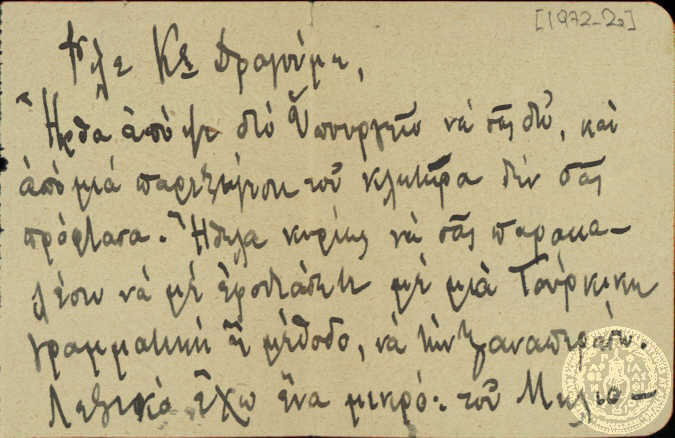 [1972-2α]
Φίλε Κε Δραγούμη,
Ἦρθα ἀπόψε στό Ὑπουργεῖο νά σᾶς δῶ, καί
ἀπό μιά παρεξήγηση τοῦ κλητῆρα δέν σᾶς
πρόφτασα. Ἤθελα κυρίως νά σᾶς παρακα-
λέσω νά μέ ἐφοδιάσετε μέ μιά Τούρκικη
γραμματική ἤ μέθοδο, νά τήν ξαναπεράσω.
Λεξικό ἔχω ἕνα μικρό: τοῦ Μηλιο-